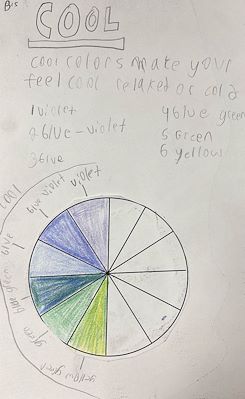 COOL
cool colors make your
feel cool relaked or cold
1 violet
2 blue-violet
3 blue
4 blue green
5 Green
6 yellow
cool
blue violet
violet
blue
blue green
green
yellow green